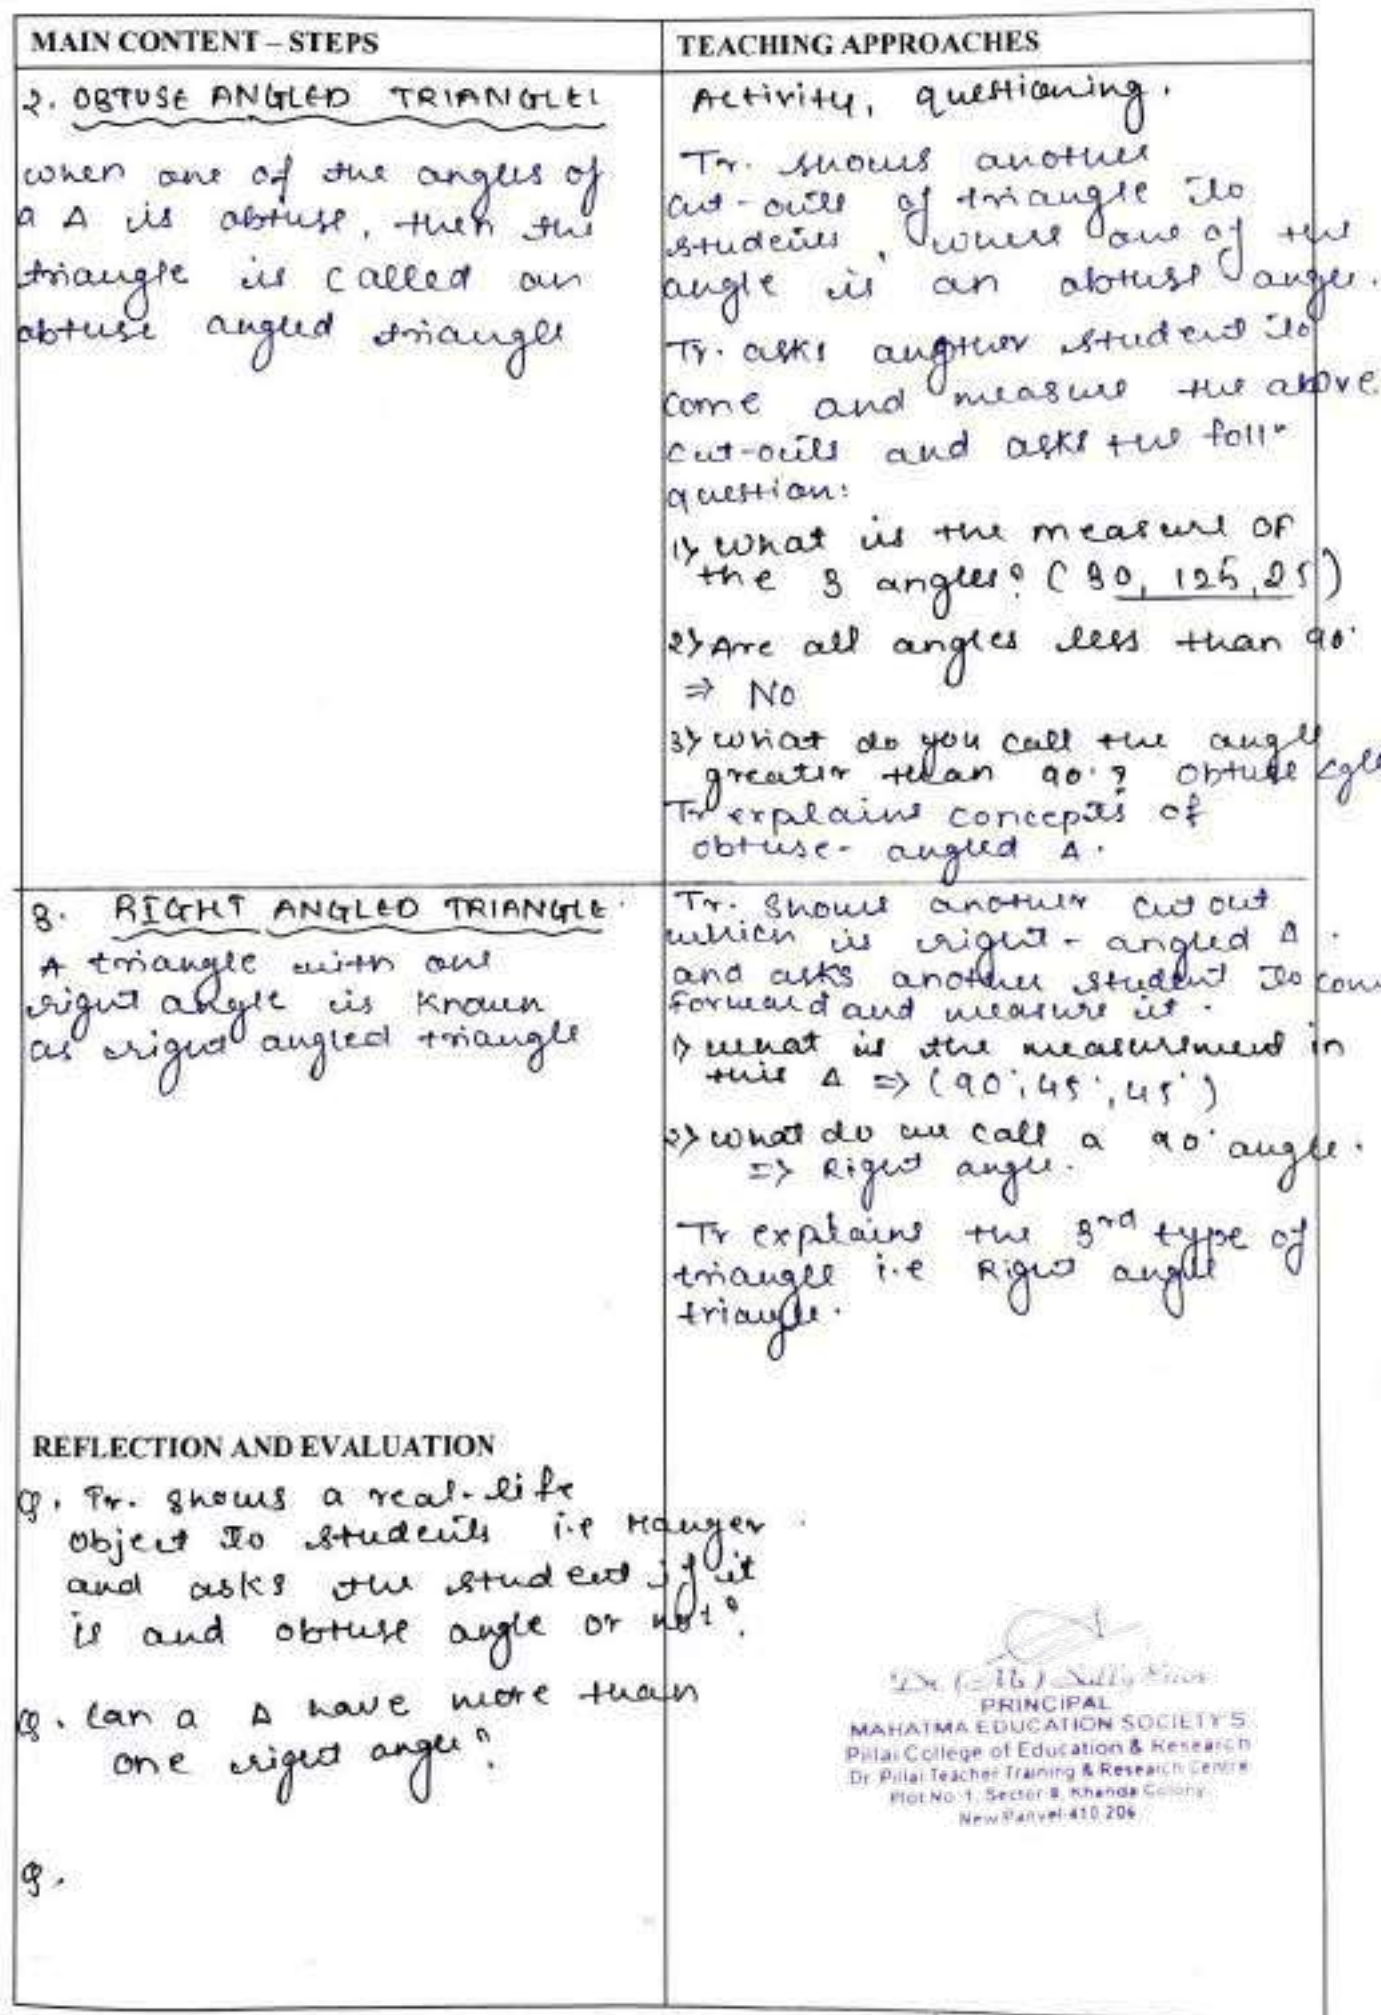 MAIN CONTENT – STEPS
TEACHING APPROACHES
2. OBTUSE ANGLED TRIANGLE
when one of the angles of
a Δ is obtuse, then the
triangle is called an
obtuse angled triangle
Activity, questioning.
Tr. shows another
cut-outs of triangle to
students, where one of the
angle is an obtuse angle.
Tr. asks another student to
come and measure the above
cut-outs and asks the foll"
question:
1) What is the measure of
the 3 angles? (30, 125, 25)
2) Are all angles less than 90°
⇒ No
3) What do you call the angle
greater than 90°? Obtuse
Tr explains concepts of
obtuse- angled Δ.
3. RIGHT ANGLED TRIANGLE
A triangle with one
right angle is known
as right angled triangle
Tr. shows another cut out
which is right-angled Δ.
and asks another student to com
forward and measure it.
1) What is the measurement in
this Δ ⇒ (90°, 45°, 45°)
2) What do we call a 90° angle.
⇒ Right angle.
Tr explains the 3rd type of
triangle i.e Right angle
triangle.
REFLECTION AND EVALUATION
Q. Tr. shows a real-life
object to students i.e Hanger.
and asks the student if it
is and obtuse angle or not?
Q. Can a Δ have more than
one right angle?
Q.
PRINCIPAL
MAHATMA EDUCATION SOCIETY'S
Pillai College of Education & Research
Dr. Pillai Teacher Training & Research Centre
Plot No. 1, Sector 8, Khanda Colony
New Panvel-410 206